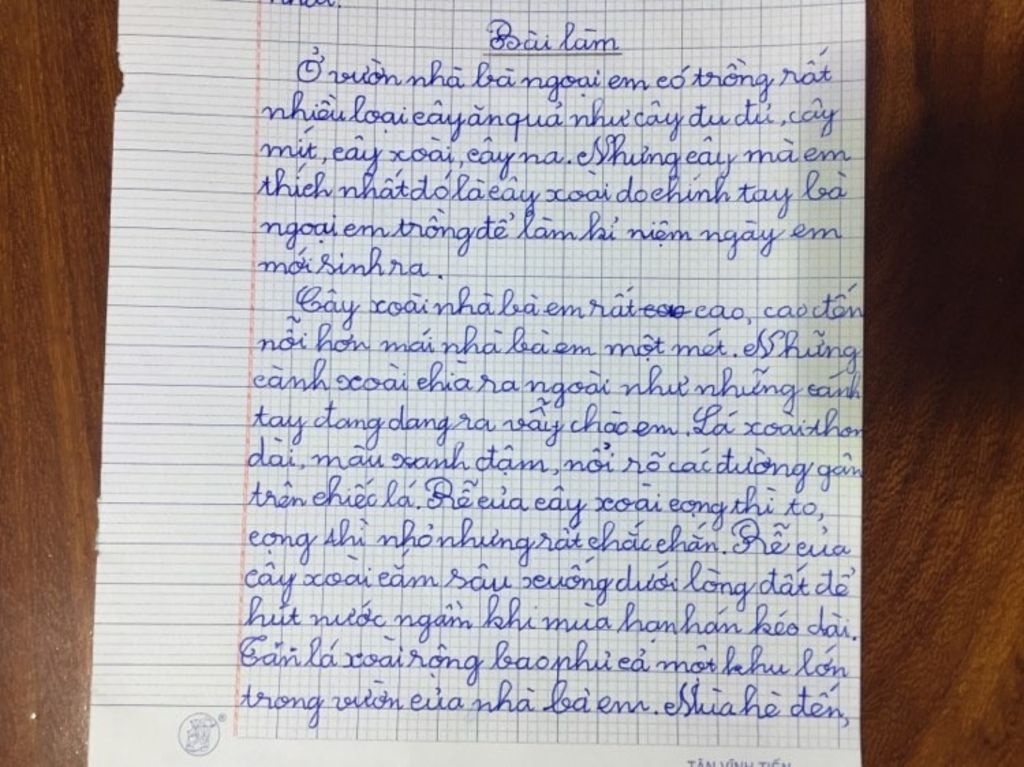 Bài làm
Ở vườn nhà bà ngoại em có trồng rất
nhiều loại cây ăn quả như cây đu đủ, cây
mít, cây xoài, cây na. Nhưng cây mà em
thích nhất đó là cây xoài do chính tay bà
ngoại em trồng để làm kỉ niệm ngày em
mới sinh ra.
Cây xoài nhà bà em rất cao, cao đến
nỗi hơn mái nhà bà em một mét. Những
cành xoài chìa ra ngoài như những cánh
tay đang dang ra vẫy chào em. Lá xoài thon
dài, màu xanh đậm, nổi rõ các đường gân
trên chiếc lá. Rễ của cây xoài cọng thì to,
cọng thì nhỏ nhưng rất chắc chắn. Rễ của
cây xoài cắm sâu xuống dưới lòng đất để
hút nước ngầm khi mùa hạn hán kéo dài.
Tán lá xoài rộng bao phủ cả một khu lớn
trong vườn của nhà bà em. Mùa hè đến,
TÂN VĨNH TIẾN